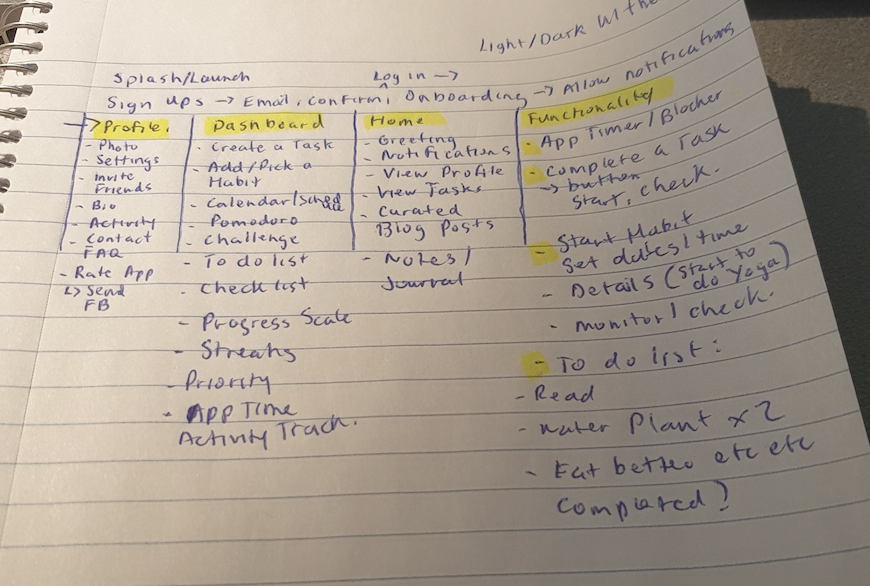 Light/Dark with
Splash/Launch
Log in →
Sign ups → Email, confirm, Onboarding → Allow notifications
→ Profile.
- Photo
- Settings
- Invite
Friends
- Bio
- Activity
- Contact
FAQ
- Rate App
↳ Send
FB
Dashboard
- Create a Task
- Add/Pick a
Habit
- Calendar/Sched
- Pomodoro
- Challenge
- To do list
- Check list
- Progress Scale
- Streaks
- Priority
- App Time
Activity Track.
Home
- Greeting
- Notifications
- View Profile
- View Tasks
- Curated
Blog Posts
- Notes/
Journal
Functionality
- App Timer/Blocker
- Complete a Task
→ button
start, check.
- Start Habit
Set dates/time
- Details (Start to
do Yoga)
- monitor/check.
- To do list:
- Read
- Water Plant x 2
- Eat better etc etc
Completed?